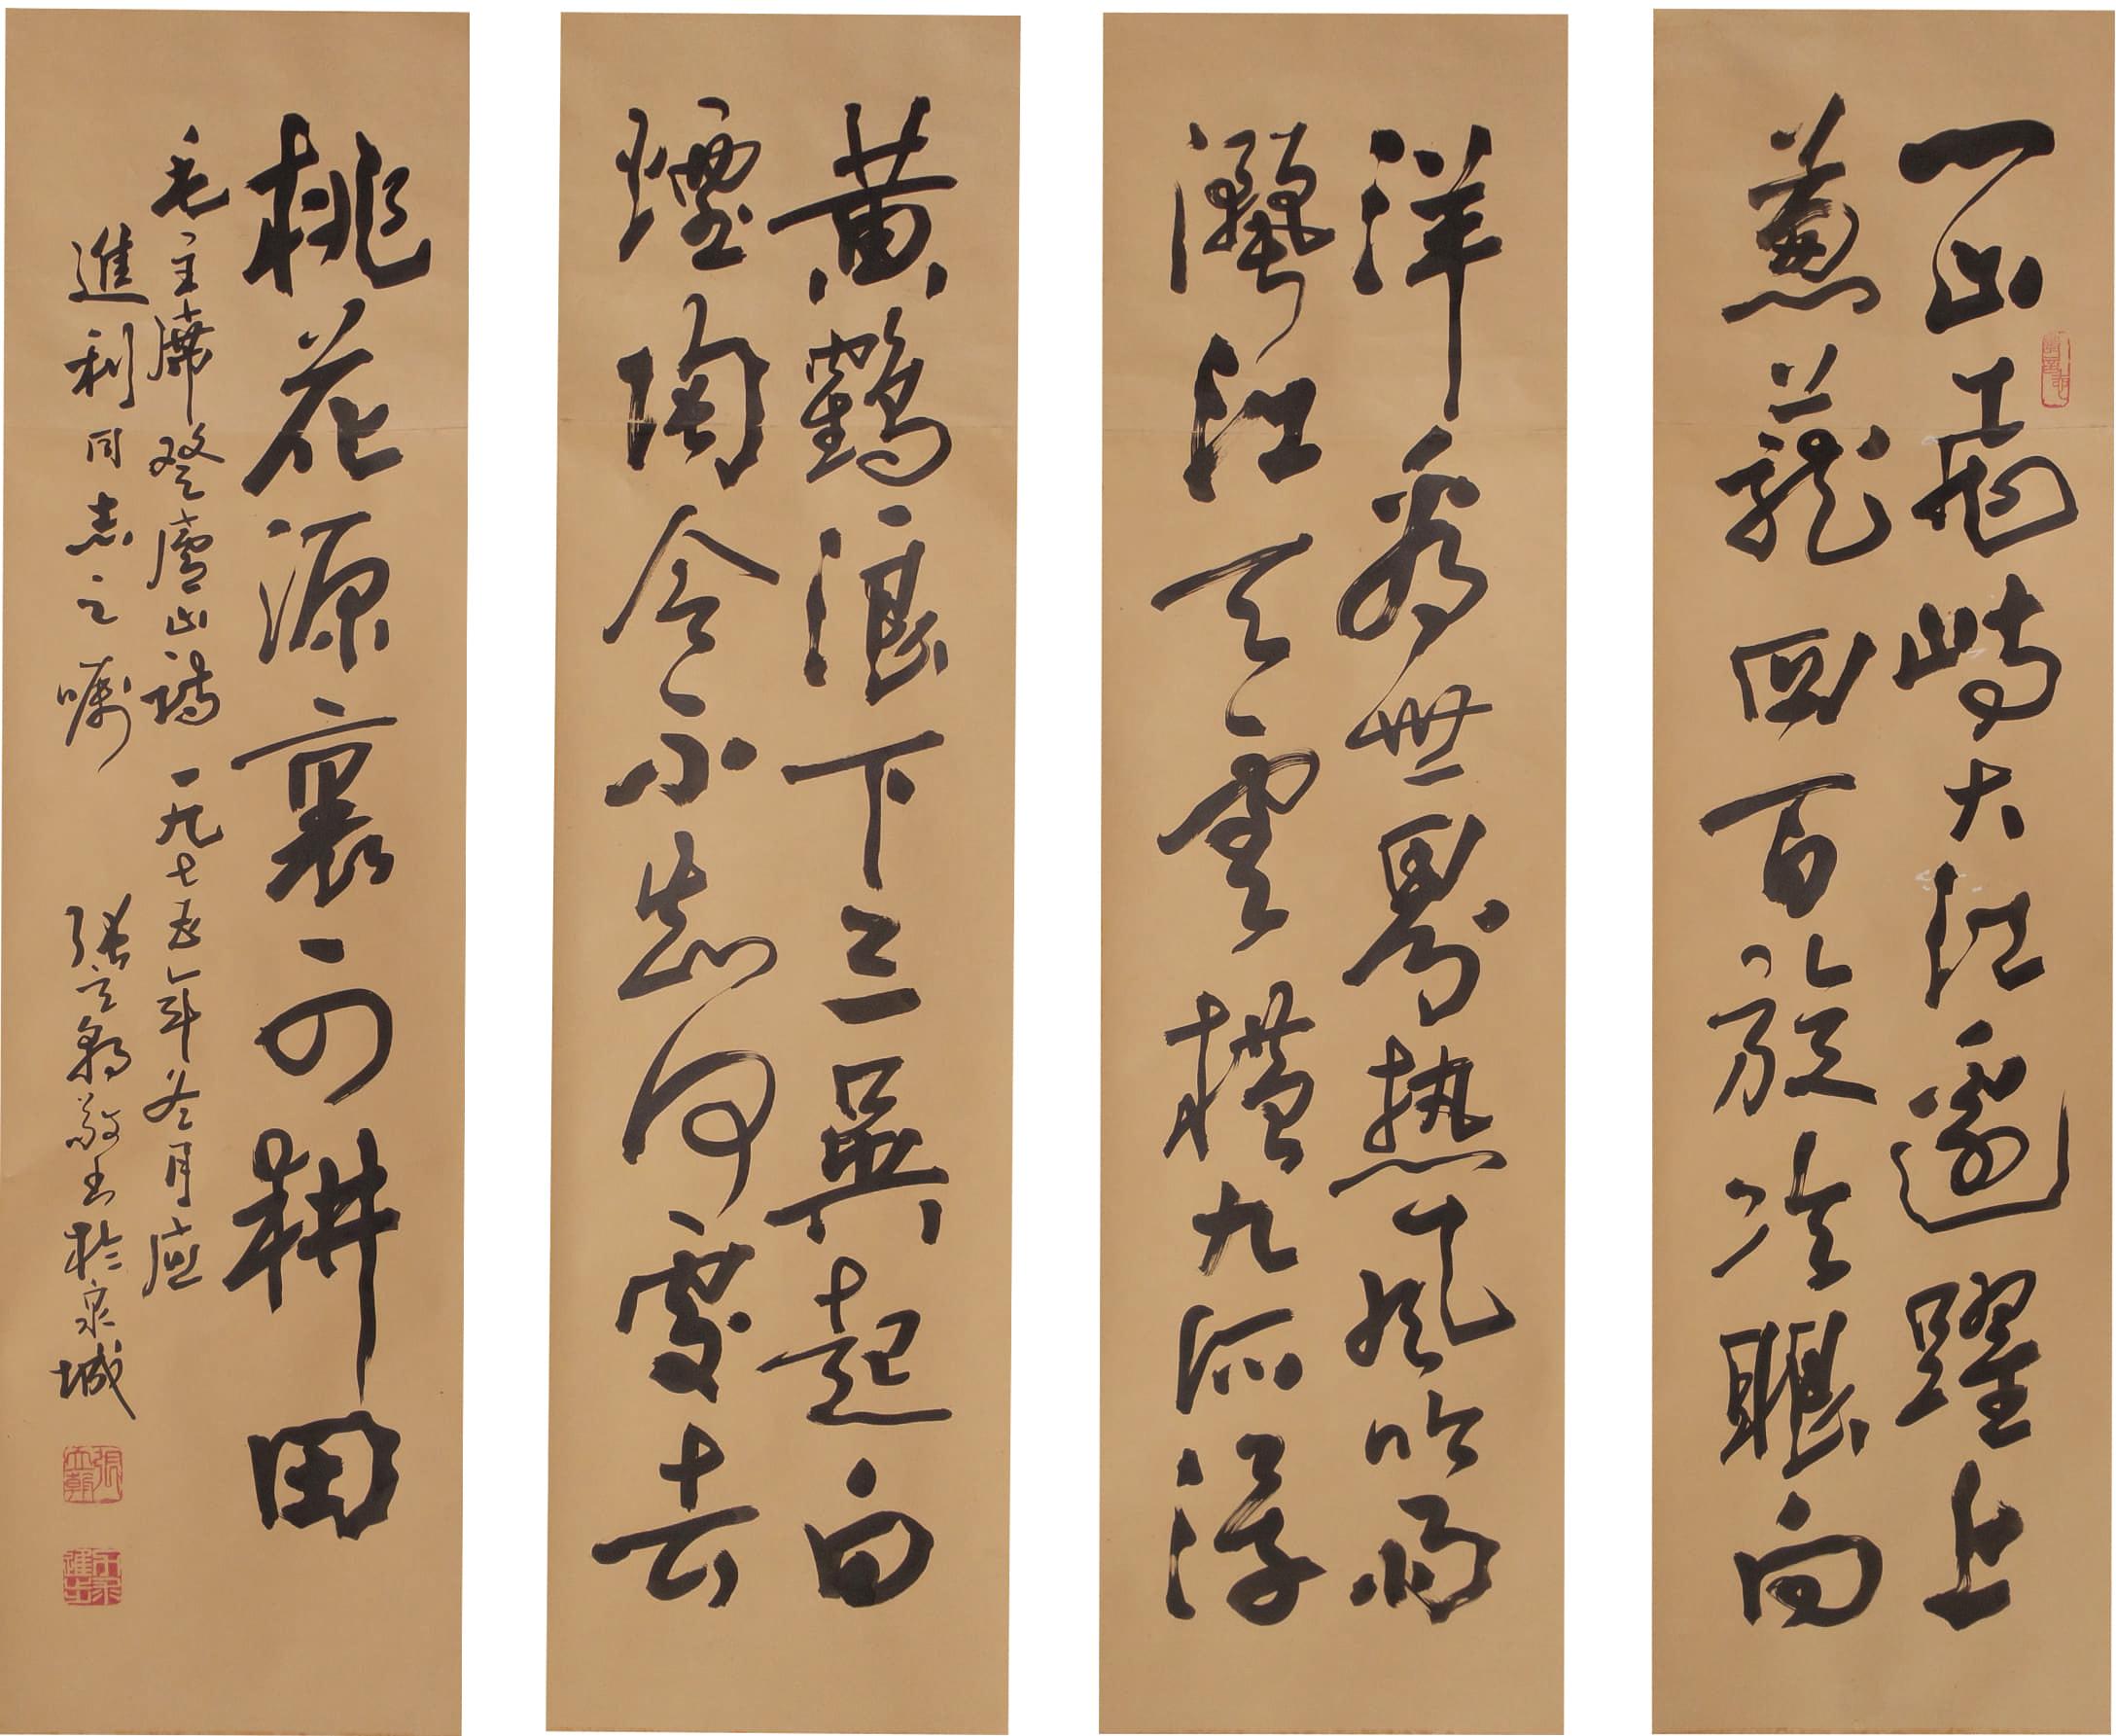 一山飛峙大江邊躍上
蔥蘢四百旋冷眼向
洋看世界热風吹雨
灑江天雲橫九派浮
黃鶴浪下三吳起白
煙陶令不知何處去
桃花源裏可耕田
毛主席登廬山詩 一九七五年冬月應
進利同志之囑 張立朝敬书於泉城
張立朝